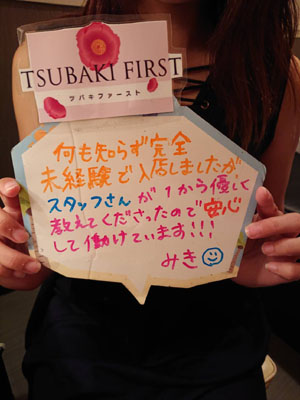 TSUBAKI FIRST
ツバキファースト
何も知らず完全
未経験で入店しましたが
スタッフさんが1から優しく
教えてくださったので安心
して働けています!!!
みき